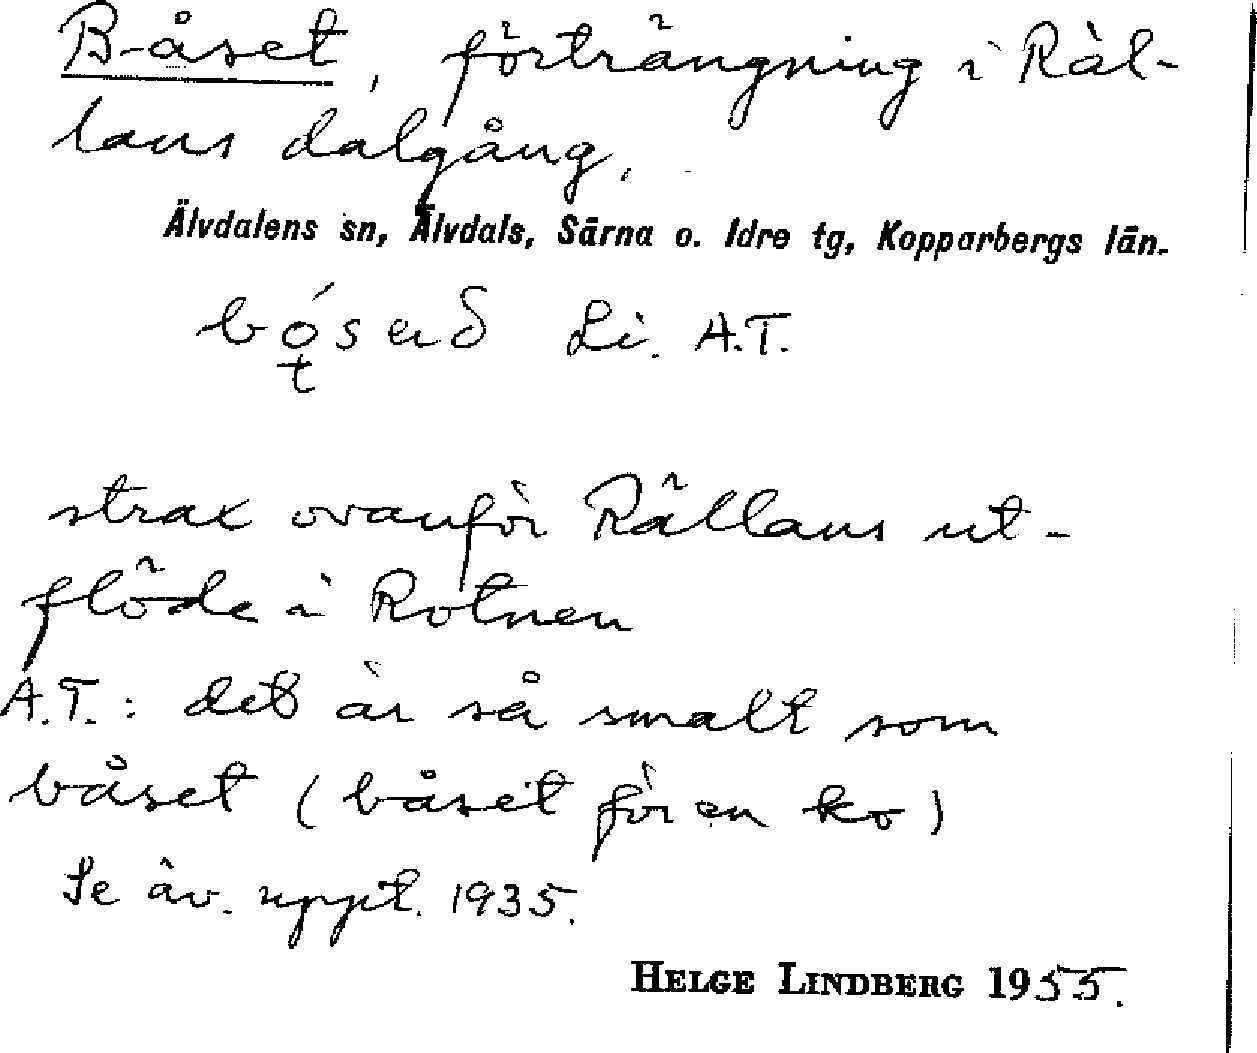 Båset, förträngning i Räl-
lans dalgång.
Älvdalens sn, Älvdals, Särna o. Idre tg, Kopparbergs län.
Li. A.T.
strax ovanför Rällans ut-
flöde i Rotnen
A.T.: det är så smalt som
båset (båset för en ko)
Se äv. uppt. 1935.
HELGE LINDBERG 1955.